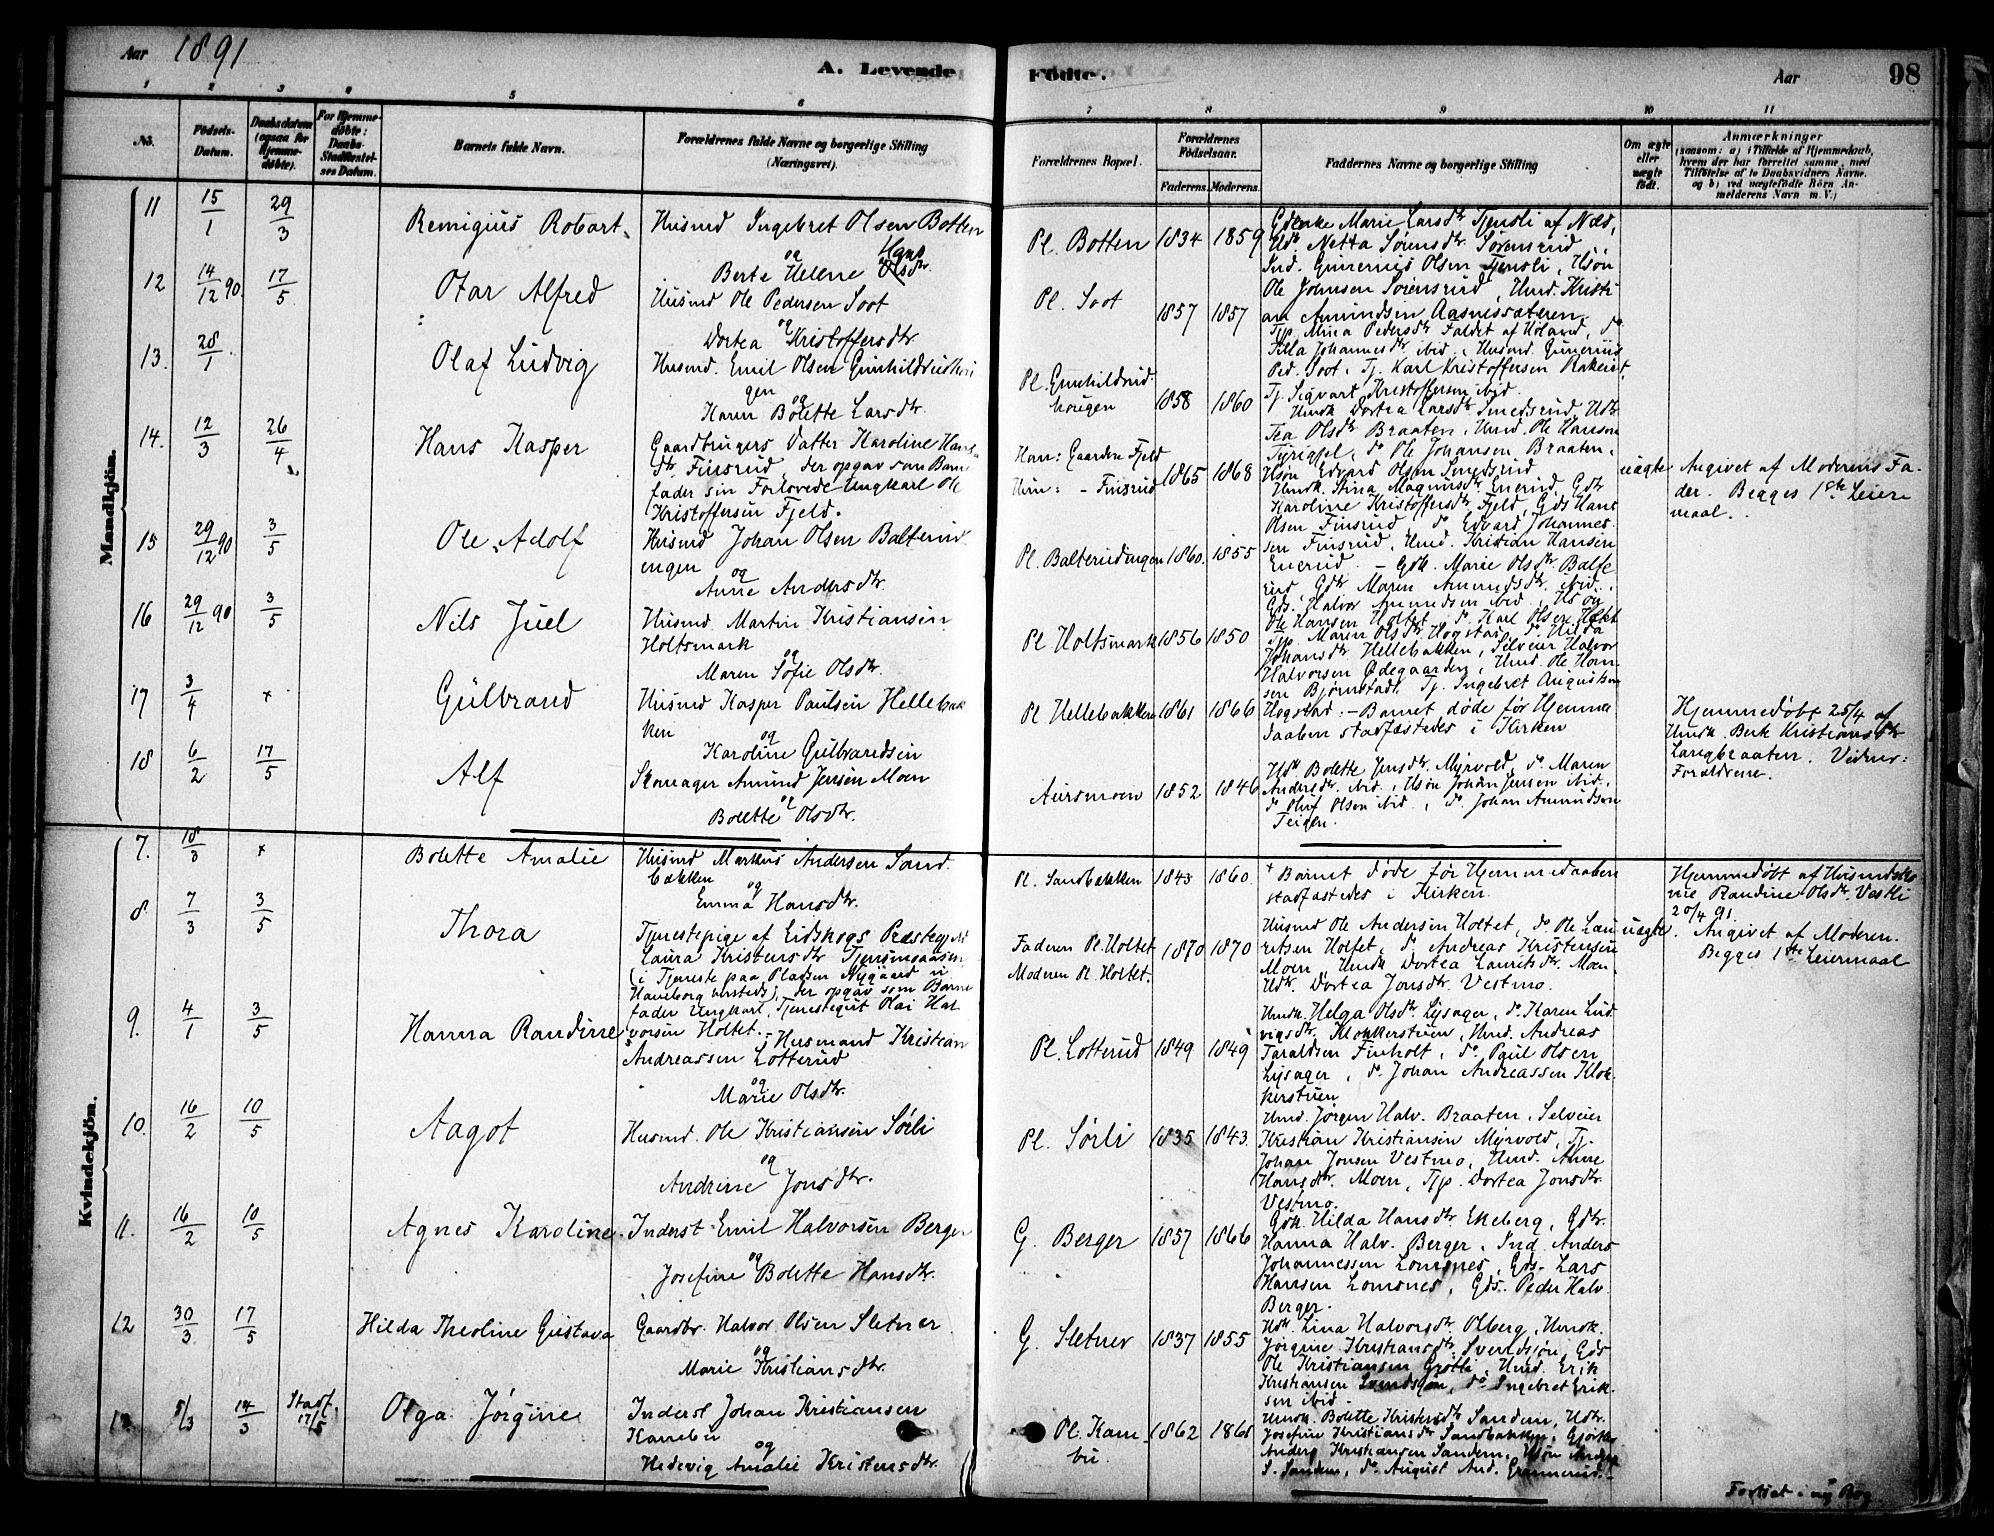 Aar 1891
A. Levende Fødte.
Aar
98
1 2 3 4 5 6 7 8 9 10 11
No.
Fødsels-Datum.
Daabsdatum (ogsaa for Hjemmedøbte).
For Hjemmedøbte: Daabs-Stadfæstelses Datum.
Barnets fulde Navn.
Forældrenes fulde Navne og borgerlige Stilling (Næringsvei).
Forældrenes Bopæl.
Forældrenes Fødselsaar.
Faderens. Moderens.
Faddernes Navne og borgerlige Stilling
Om ægte eller uægte født.
Anmærkninger
(saasom: a) i Tilfælde af Hjemmedaab, hvem der har forrettet samme, med Tilføielse af to Daabsvidners Navne. og b) ved uægtefødte Børn Anmelderens Navn m. V.)
Mandkjøn.
11 15/1 29/3 Remigius Robart. Husmd Ingebret Olsen Botten
og
Berte Helene Hans Olsdtr
Pl. Botten 1834 1859
Marie Larsdtr Tjensli af Næs,
Udtr Netta Sørensdtr Sørensrud,
Ind. Gunerius Olsen Tjensli, Usøn
Ole Johnsen Sørensrud, Umd. Kristi
an Amundsen Aasnessæteren.
12 14/12 90 17/5 Otar Alfred Husmd Ole Pedersen Soot
og
Dortea Kristoffersdtr
Pl. Soot 1857 1857
Tjp. Mina Pedersdtr Faldet af Høland, do
Johannesdtr ibid, Husmd. Gunerius
Ped. Soot, Tj. Karl Kristoffersen Rakeist,
Tj. Sigvart Kristoffersen ibid.
13. 28/1 Olaf Ludvig Husmd. Emil Olsen Gunhildrudhou
gen
og
Karen Bolette Larsdtr.
Pl. Gunhildrud
hougen 1858 1860
Umdk Dortea Larsdtr Smedsrud, Udtr
Tea Olsdtr Braaten, Umd. Ole Hansen
do Ole Johansen Braaten,
Usøn Edvard Olsen Smedsrud
14. 12/3 26/4 Hans Kasper Gaardbrugers Datter Karoline Hans
dtr Finsrud, der opgav som Barne
fader sin Forlovede Ungkarl Ole
Kristoffersen Fjeld.
Han: Gaarden Fjeld
Hun: - Finsrud 1865 1868
Umdk. Stina Magnusdtr Enerud, Gdtr
Karoline Kristoffersdtr Fjeld, Gds Hans
Olsen Finsrud, do Edvard Johannes
sen Finsrud, Umd. Kristian Hansen
Enerud.
uægte
Angivet af Moderens Fa-
der. Begges 1ste Leier
maal.
15 29/12 90 3/5 Ole Adolf Husmd Johan Olsen Balterud
engen
og
Anne Andersdtr
Pl. Balterudengen 1860. 1855
Gdk. Marie Olsdtr Balte
rud, Gdtr Maren Amundsdtr ibid,
Gds. Halvor Amundsen ibid, Usøn
Ole Hansen Holtet, do Karl Olsen
16 29/12 90 3/5 Nils Juel Husmd Martin Kristiansen
Holtsmark
og
Maren Sofie Olsdtr.
Pl Holtsmark 1856 1850
Tjp Maren Olsdtr Hogstad, do Hilda
Johansdtr Hellebakken, Selveier Halvor
Halvorsen Ødegaarden, Umd. Ole Han
sen Bjørnstad, Tj. Ingebret
Hogstad
17 3/4 × Gulbrand Husmd Kasper Paulsen Hellebak
ken
og
Karoline Gulbrandsen
Pl Hellebakken 1861 1866
Barnet døde før Hjemme
daaben stadfæstedes i Kirken
Hjemmedøbt 25/4 af
Umdk. Berte Kristiansdtr
Langbraaten. Vidner:
Forældrene.
18 6/2 17/5 Alf Skomager Amund Jensen Moen
og
Bolette Olsdtr.
Aursmoen 1852 1846
Udtr Bolette Jensdtr. Myrvold, do Maren
Andersdtr ibid, Usøn Johan Jensen ibid,
do Oluf Olsen ibid, do Johan Amundsen
Teigen.
Kvindekjøn.
7. 18/3 × Bolette Amalie Husmd Markus Andersen Sand
bækken
og
Emma Hansdtr.
Pl. Sandbækken 1843 1860
× Barnet døde før Hjemmedaaben
stadfæstedes i Kirken.
Hjemmedøbt af Husmandsko
ne Randine Olsdtr. Vestli
20/4 91.
8 7/3 3/5 Thora Tjenestepige af Eidskogs Præstegjeld
Laura Kristensdtr
(i Tjeneste paa Pladsen Nygaard
der opgav som Barne
fader Ungkarl, Tjenestegut Olai Hal
vorsen Holtet.
Faderen Pl. Holtet
Moderen Pl. Holtet. 1870 1870
Husmd Ole Andersen Holtet, do Ole Lau
ritsen Holtet, do Andreas Kristensen
Moen, Umdk Dortea Lauritsdtr. Moen
Udtr. Dortea Jonsdtr. Vestmo.
uægte. Angivet af Moderen.
Begges 1ste Leiermaal
9. 4/1 3/5 Hanna Randine Husmand Kristian
Andreassen Lotterud
og
Marie Olsdtr.
Pl. Lotterud 1849 1849
Umdk. Helga Olsdtr. Lysager, do Karen Lud
vigsdtr. Klokkerstuen, Umd. Andreas
Taraldsen Finholt, do Paul Olsen
Lysager, do Johan Andreassen Klok
kerstuen
10. 16/2 10/5 Aagot Husmd. Ole Kristiansen Sørli
og
Andrine Jonsdtr.
Pl. Sørli 1835 1843
Umd. Jørgen Halv. Braaten, Selveier
Kristian Kristiansen Myrvold, Tj.
Johan Jonsen Vestmo, Umd. Anne
Hansdtr. Moen, Tjp. Dortea Jonsdtr.
Vestmo.
11. 16/2 10/5 Agnes Karoline. Inderst Emil Halvorsen Berger
og
Josefine Bolette Hansdtr.
G. Berger 1857 1866
Gdk. Hilda Hansdtr Ekeberg, Gdtr.
Hanna Halv. Berger, Ind. Anders
Johannessen Lomsnes, Gds. Lars
Hansen Lomsnes, Gds. Peder Halv
Berger.
12 30/3 17/5 Hilda Theoline Gustava Gaardbr. Halvor Olsen Sletner
og
Marie Kristiansdtr.
G. Sletner 1837 1855
Udtr. Lina Halvorsdtr Olberg, Umdk.
Jørgine Kristiansdtr. Svendsjøn, Gds
Ole Kristiansen Grøtli, Umd. Erik
Kristiansen Svendsjøn, do Ingebret Erik
sen ibid.
13. 5/3 14/3 Stadf. 17/5 Olga Jørgine Inderst Johan Kristiansen
Kambu
og
Hedevig Amalie Kristensdtr.
Pl. Kam-
bu. 1862 1865
Umdk. Bolette Kristensdtr Sanden, Udtr.
Josefine Kristiansdtr Sandbækken,
Anders Kristiansen Sanden, Usøn
S. Sanden, do August And. Grønnerud.
Fortsat i ny Bog